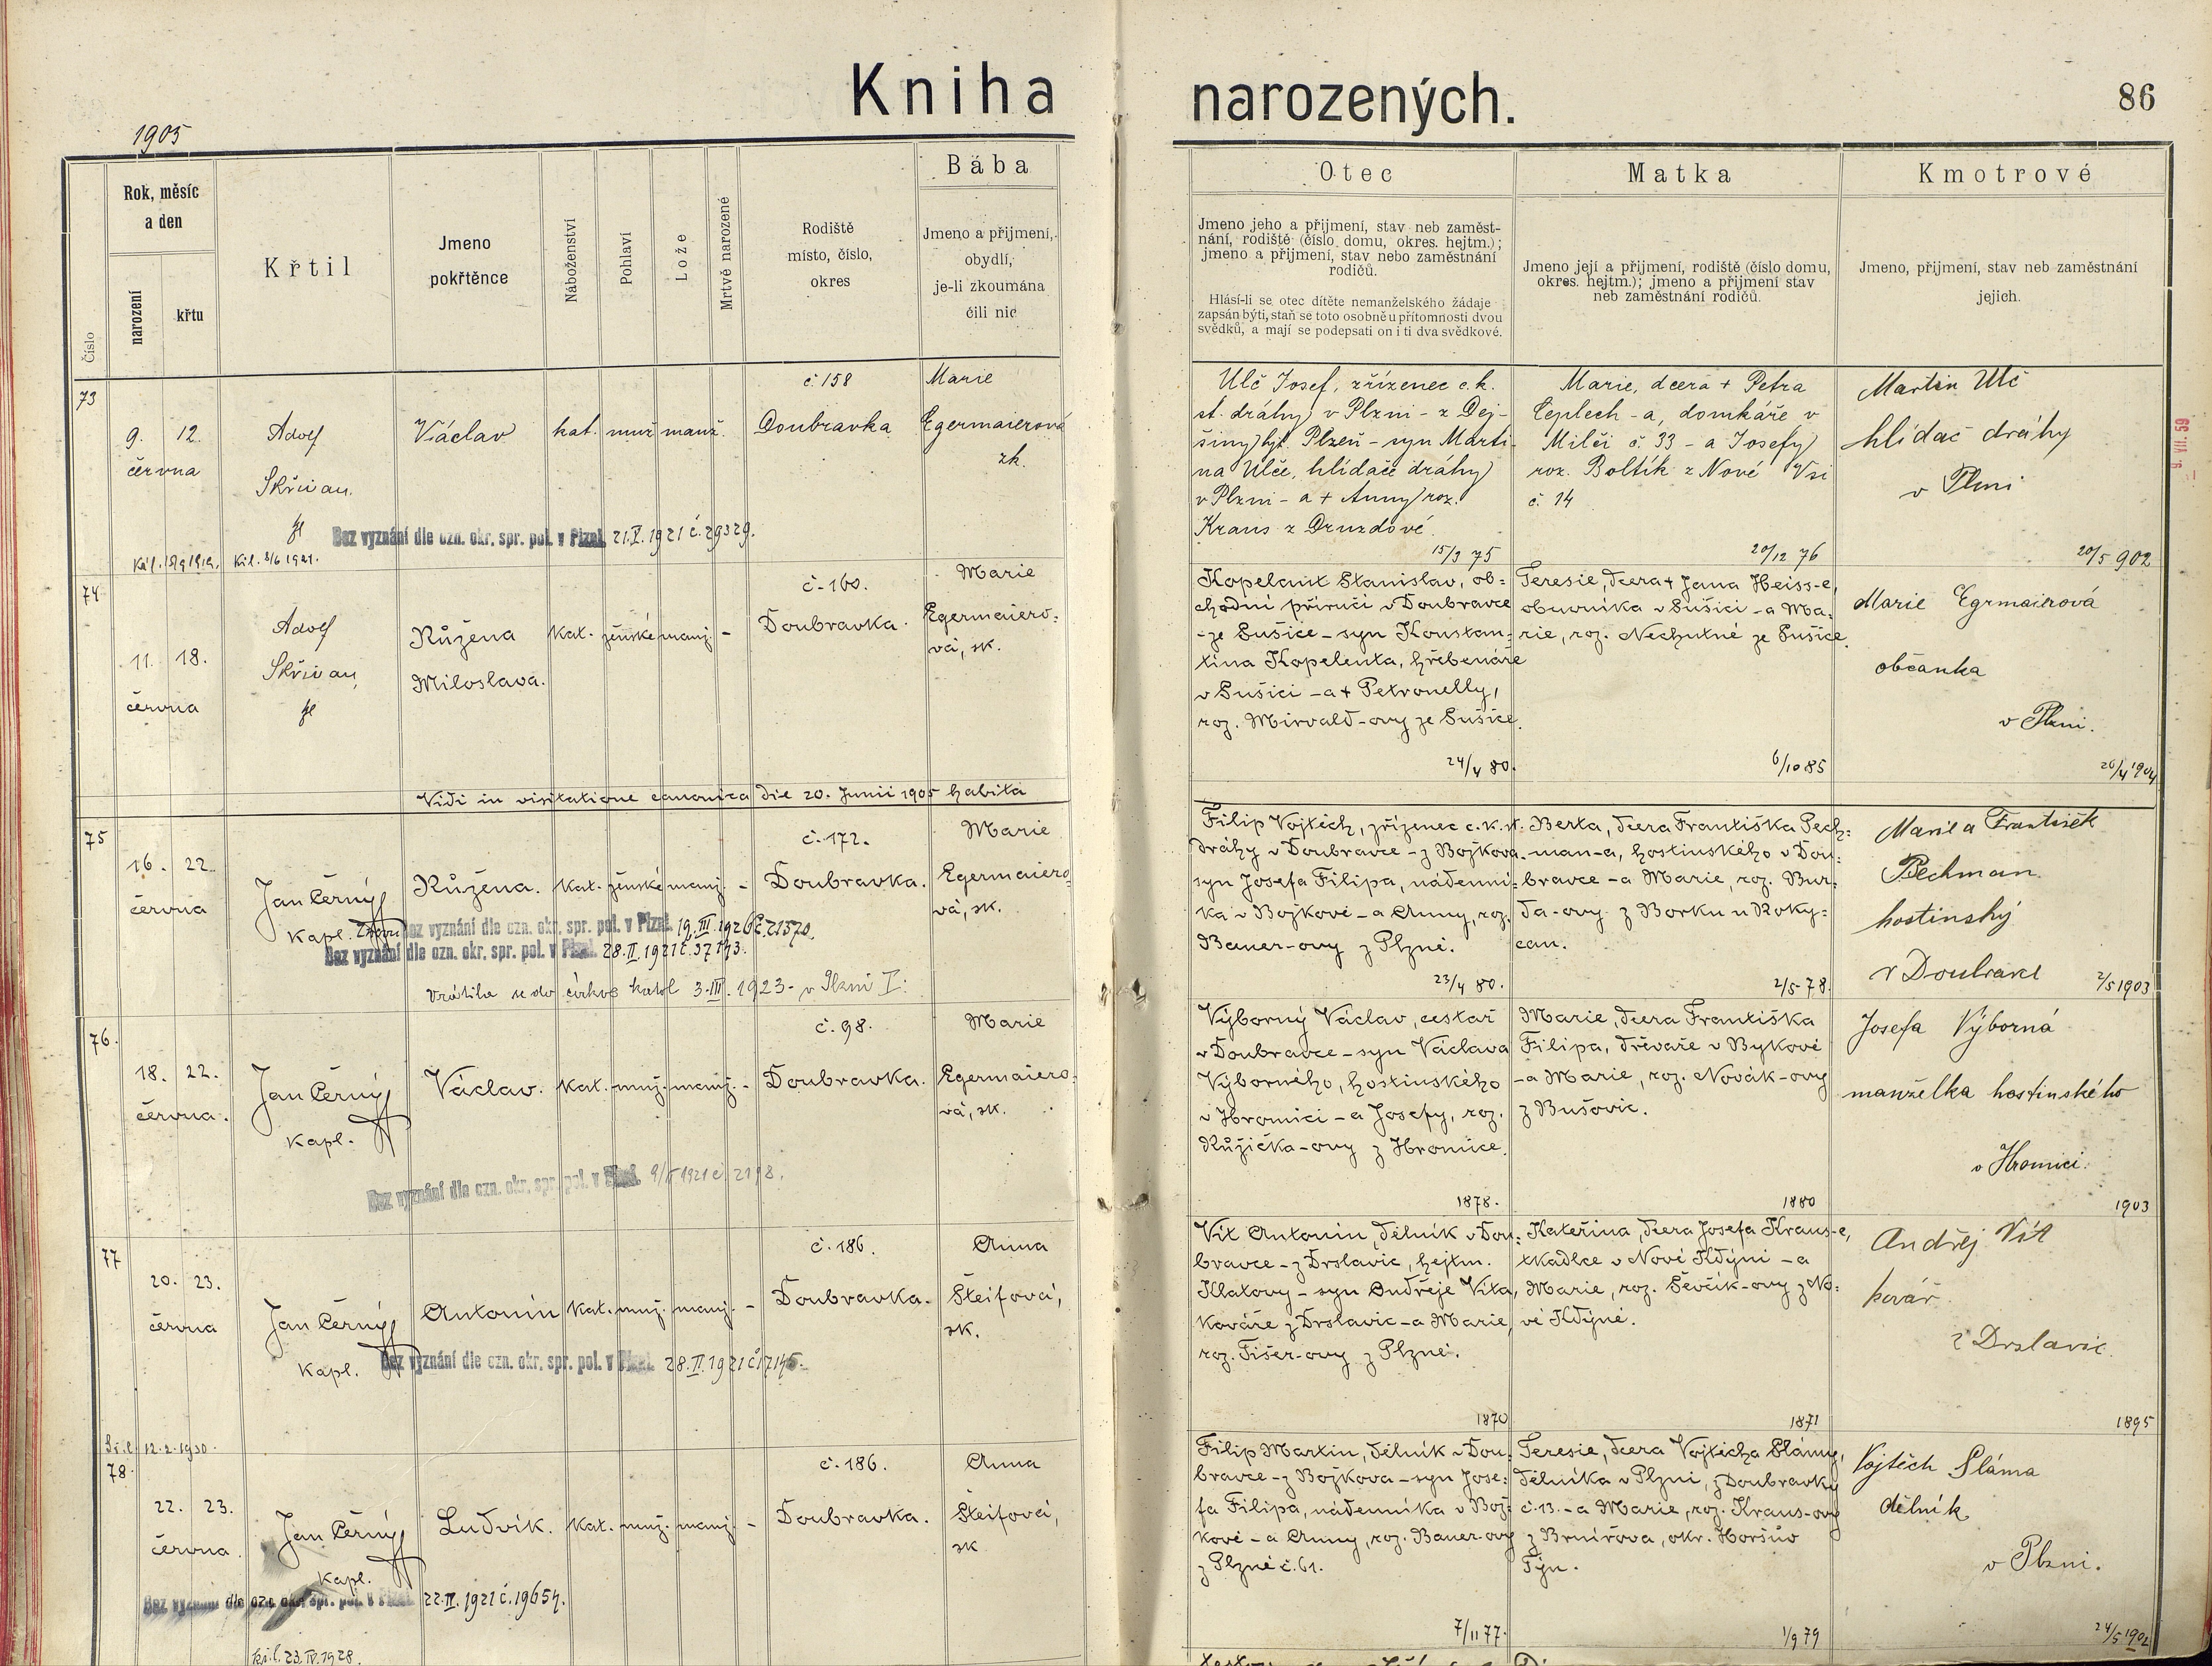 Kniha narozených.
86
1905
Číslo
Rok, měsíc
a den
narození
křtu
Křtil
Jmeno
pokřtěnce
Náboženství
Pohlaví
Lože
Mrtvě narozené
Rodiště
místo, číslo,
okres
Bába
Jmeno a přijmení,
obydlí,
je-li zkoumána
čili nic
Otec
Jmeno jeho a přijmení, stav neb zaměst-
nání, rodiště (číslo domu, okres. hejtm.);
jmeno a přijmení, stav nebo zaměstnání
rodičů.
Hlásí-li se otec dítěte nemanželského žádaje
zapsán býti, staň se toto osobně u přítomnosti dvou
svědků, a mají se podepsati on i ti dva svědkové.
Matka
Jmeno její a přijmení, rodiště (číslo domu,
okres. hejtm.); jmeno a přijmení stav
neb zaměstnání rodičů.
Kmotrové
Jmeno, přijmení, stav neb zaměstnání
jejich.
9. VII. 59
73
9. 12.
června
Adolf
Skřivan,
Václav
kat. muž. manž.
č. 158
Doubravka
Marie
Egermaierová
zk.
Bez vyznání dle ozn. okr. spr. pol. v Plzni 21.V.1921 č. 29329.
Ulč Josef, zřízenec c. k.
st. dráhy v Plzni - z Dej-
šiny hjt. Plzeň - syn Marti-
na Ulče, hlídače dráhy
v Plzni - a + Anny roz.
Kraus z Druzdové.
15/3 75
Marie, dcera + Petra
Teplech-a, domkáře v
Milči č. 33 - a Josefy
roz. Boltík z Nové Vsi
č 14
20/12 76
Martin Ulč
hlídač dráhy
v Plzni
20/5 902
74
11. 18.
června
Adolf
Skřivan,
Růžena
Miloslava.
Kat. ženské manž. -
č. 160.
Doubravka.
Marie
Egermaiero-
vá, zk.
Kopelent Stanislav, ob-
chodní příručí v Doubravce
- ze Sušice - syn Konstan-
tina Kopelenta, hřebenáře
v Sušici - a + Petronelly,
roz. Mirvald-ovy ze Sušice.
24/4 80.
Teresie, dcera + Jana Heiss-e,
obuvníka v Sušici - a Ma-
rie, roz. Nechutné ze Sušice.
6/10 85
Marie Egrmaierová
občanka
v Plzni.
26/4 1904
Vidi in visitatione canonica die 20. Junii 1905 habita
75
16. 22.
června
Jan Černý
Kapl.
Růžena.
Kat. ženské manž. -
č. 172.
Doubravka.
Marie
Egermaiero-
vá, zk.
Znovu Bez vyznání dle ozn. okr. spr. pol. v Plzni 19.III.1926 č. 21570.
Bez vyznání dle ozn. okr. spr. pol. v Plzni 28.II.1921 č. 37173.
Vrátila se do církve katol 3.III.1923 - v Plzni I.
Filip Vojtěch, zřízenec c. k. st.
dráhy v Doubravce - z Bojkova -
syn Josefa Filipa, nádenní-
ka v Bojkově - a Anny, roz.
Bauer-ovy z Plzně.
23/4 80.
Berta, dcera Františka Pech-
man-a, hostinského v Dou-
bravce - a Marie, roz. Bur-
da-ovy z Borku u Roky-
can.
2/5 78.
Marie a František
Pechman
hostinský
v Doubravce
2/5 1903
76.
18. 22.
června.
Jan Černý
Kapl.
Václav.
Kat. muž. manž. -
č. 98.
Doubravka.
Marie
Egermaiero-
vá, zk.
Bez vyznání dle ozn. okr. spr. pol. v Plzni
Výborný Václav, cestář
v Doubravce - syn Václava
Výborného, hostinského
v Hromici - a Josefy, roz.
Růžička-ovy z Hromice.
1878.
Marie, dcera Františka
Filipa, dřevaře v Bykově
- a Marie, roz. Novák-ovy
z Bušovic.
1880
Josefa Výborná
manželka hostinského
v Hromici.
1903
77
20. 23.
června
Jan Černý
Kapl.
Antonín
Kat. muž. manž. -
č. 186.
Doubravka.
Anna
Šteifová,
zk.
Bez vyznání dle ozn. okr. spr. pol. v Plzni 28.II.1921 č. 17145.
Vít Antonín, dělník v Dou-
bravce - z Drslavic, hejtm.
Klatovy - syn Ondřeje Víta,
kováře z Drslavic - a Marie,
roz. Fišer-ovy z Plzně.
1870
Kateřina, dcera Josefa Kraus-e,
tkadlce v Nové Kdýni - a
Marie, roz. Ševčík-ovy z No-
vé Kdýně.
1871
Andřej Vít
kovář
z Drslavic.
1895
12.2.1930.
78.
22. 23.
června.
Jan Černý
Kapl.
Ludvík.
Kat. muž. manž. -
č. 186.
Doubravka.
Anna
Šteifová,
zk
Bez vyznání dle ozn. okr. spr. pol. v Plzni 22.II.1921 č. 19654.
23.IV.1928.
Filip Martin, dělník v Dou-
bravce - z Bojkova - syn Jose-
fa Filipa, nádenníka v Boj-
kově - a Anny, roz. Bauer-ovy
z Plzně č. 61.
7/11 77.
Teresie, dcera Vojtěcha Slámy,
dělníka v Plzni, z Doubravky
č. 13. - a Marie, roz. Kraus-ovy
z Brnířova, okr. Horšův
Týn.
1/9 79
Vojtěch Sláma
dělník
v Plzni.
24/5 1902